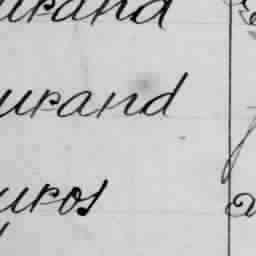 urand
urand
uros